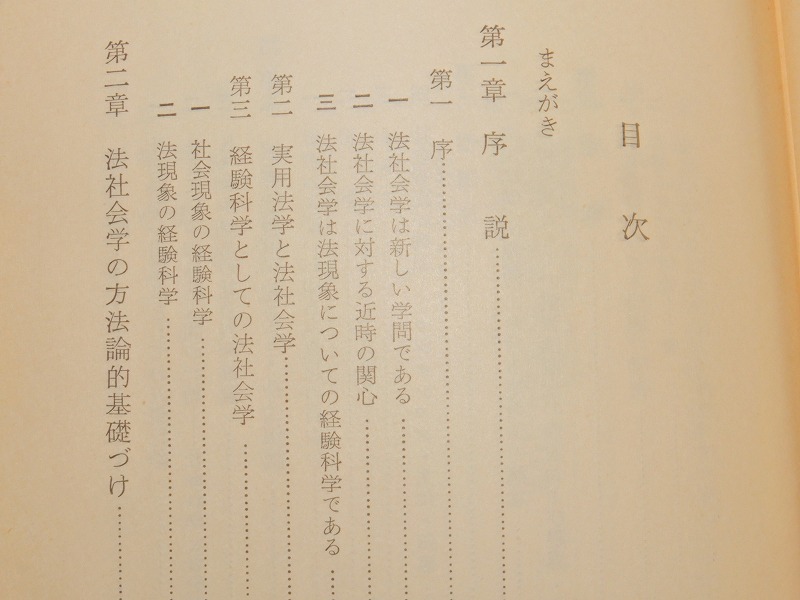 目次
まえがき
第一章 序説……………………
第一 序……………………
一 法社会学は新しい学問である……………………
二 法社会学に対する近時の関心……………………
三 法社会学は法現象についての経験科学である……
第二 実用法学と法社会学……………………
第三 経験科学としての法社会学……………………
一 社会現象の経験科学……………………
二 法現象の経験科学……………………
第二章 法社会学の方法論的基礎づけ……………